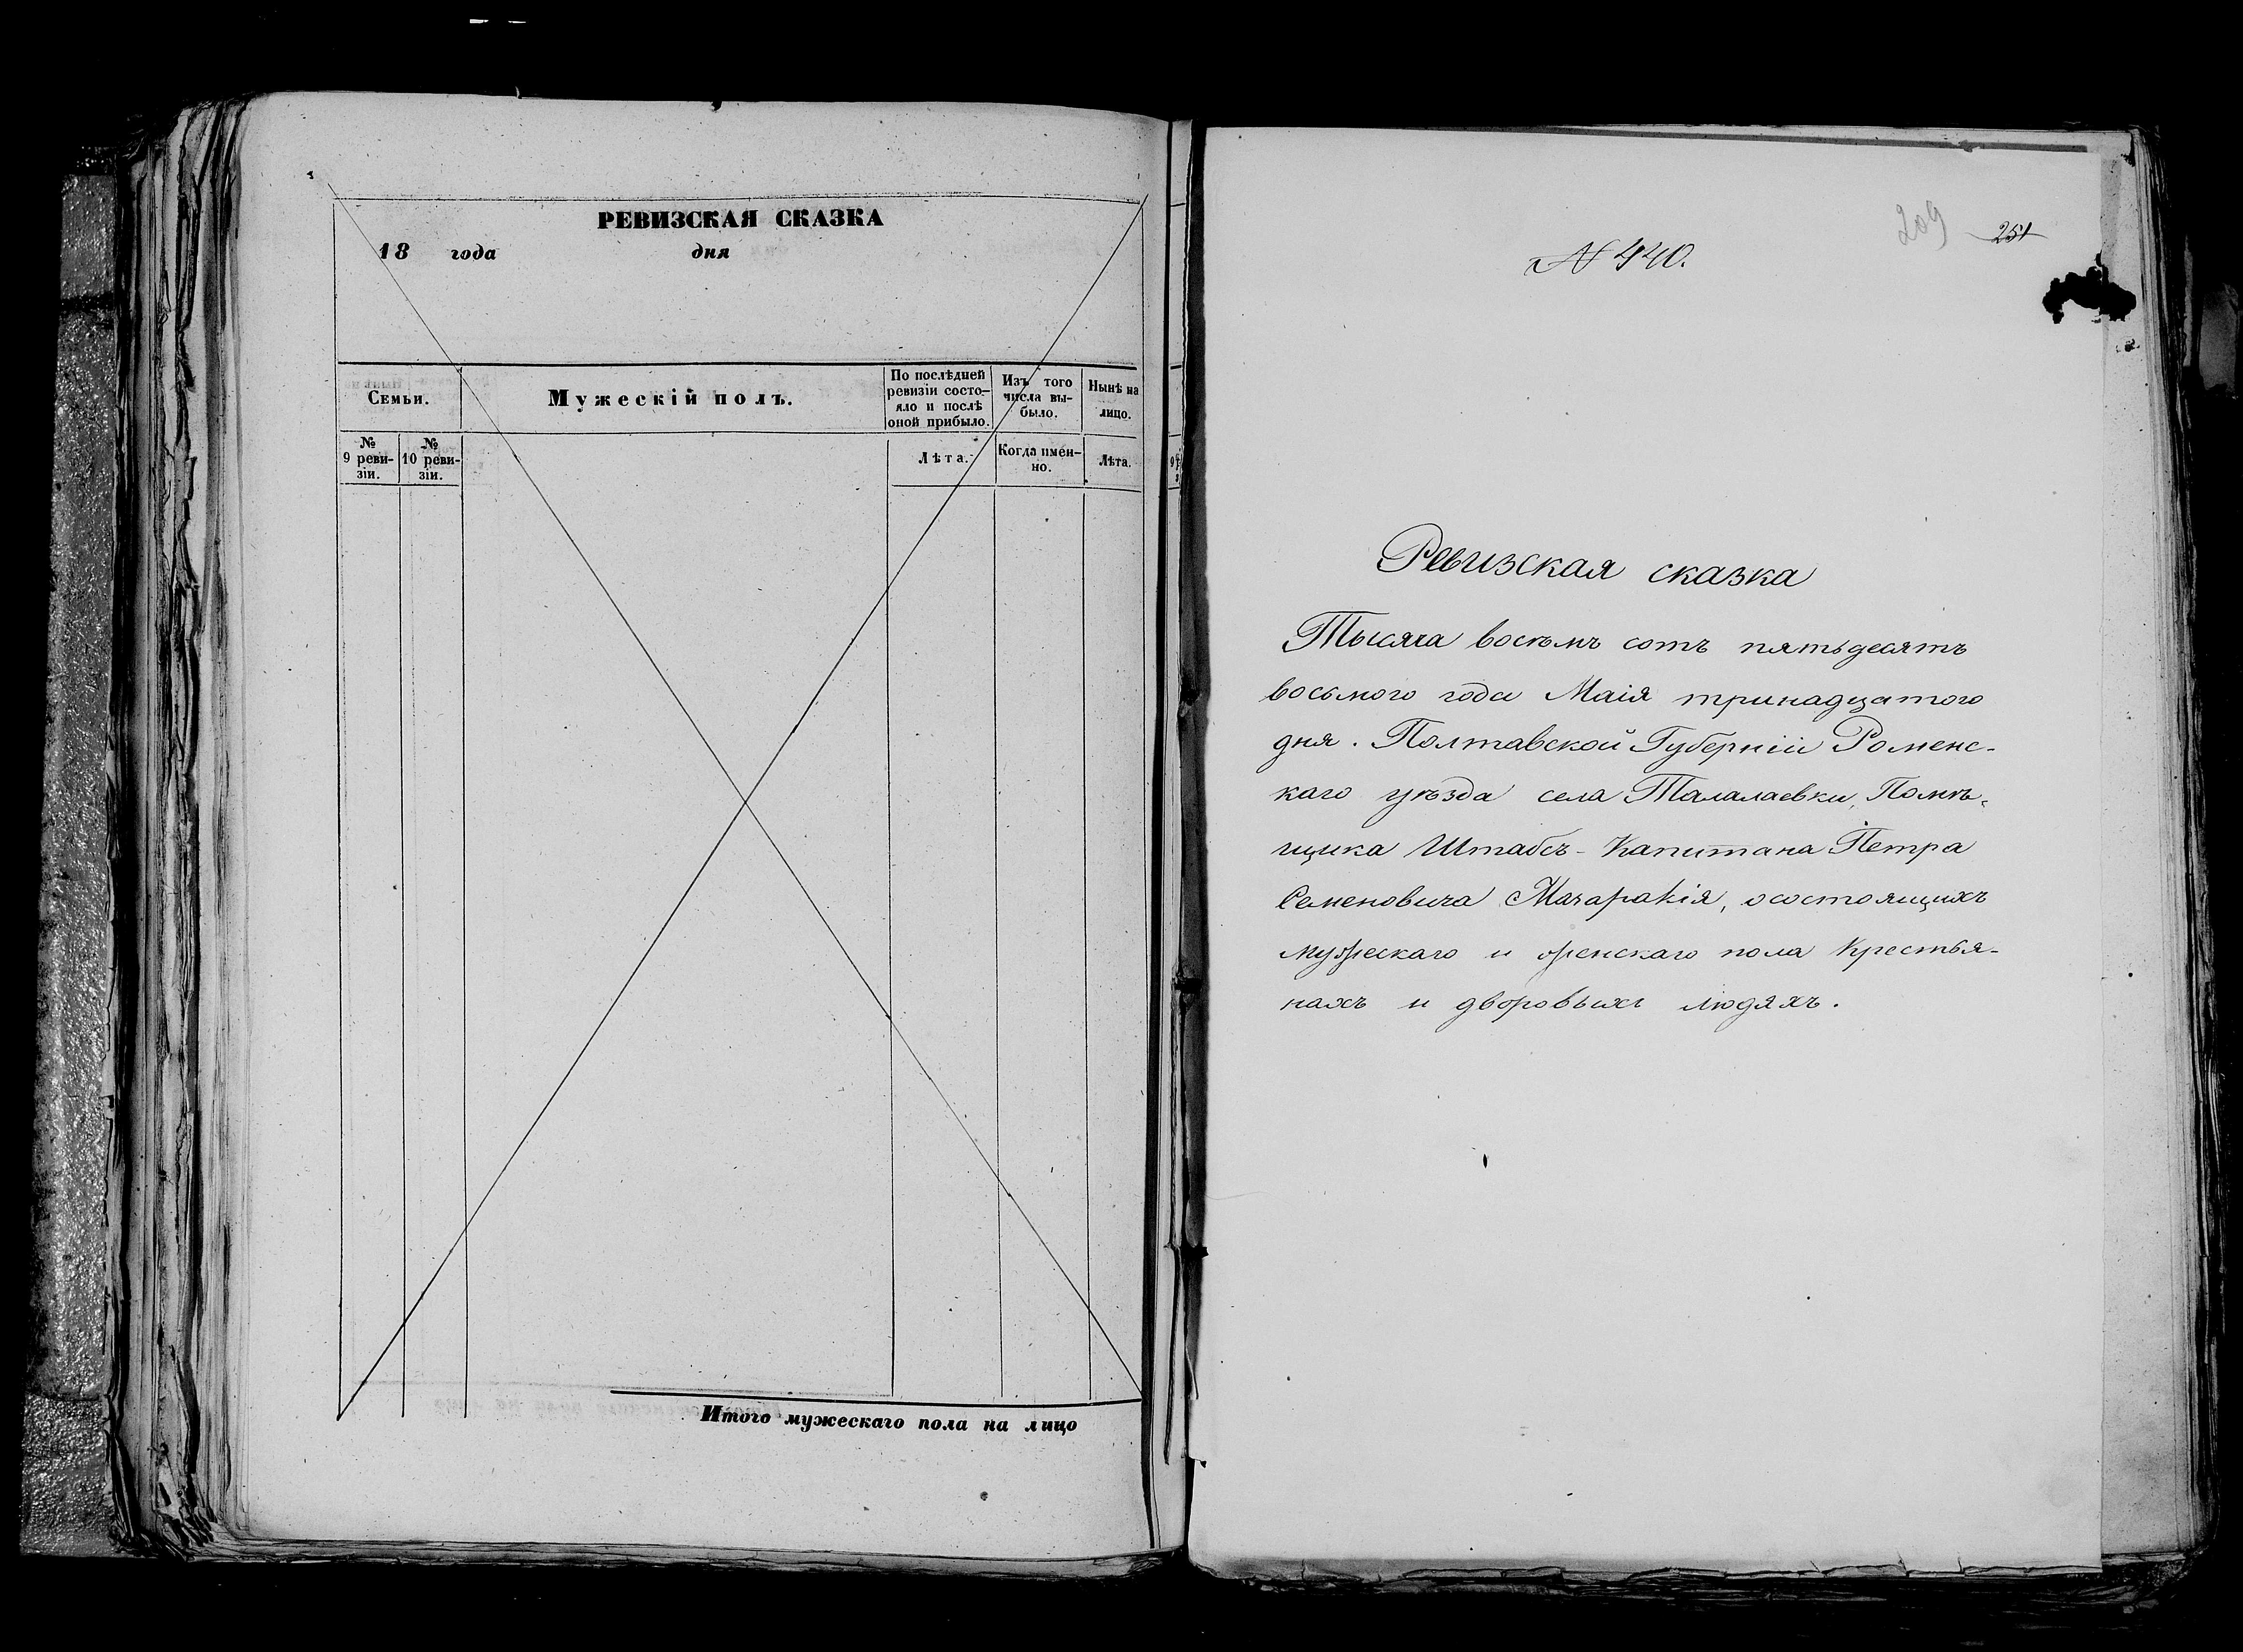 РЕВИЗСКАЯ СКАЗКА
18 года дня
Семьи.
Мужескій полъ.
По послѣдней
ревизіи состо-
яло и послѣ
оной прибыло.
Изъ того
числа вы-
было.
Нынѣ на
лицо.
№
9 реви-
зіи.
№
10 реви-
зіи.
Лѣта.
Когда имен-
но.
Лѣта.
Итого мужескаго пола на лицо
209 251
N 440.
Ревизская сказка
Тысяча восемь сотъ пятьдесятъ
восьмого года Маія тринадцатого
дня. Полтавской Губерніи Роменс-
каго уѣзда села Талалаевки, Помѣ-
щика Штабсъ-Капитана Петра
Семеновича Мачаракія, осостоящихъ
мужескаго и женскаго пола крестья-
нахъ и дворовыхъ людяхъ.